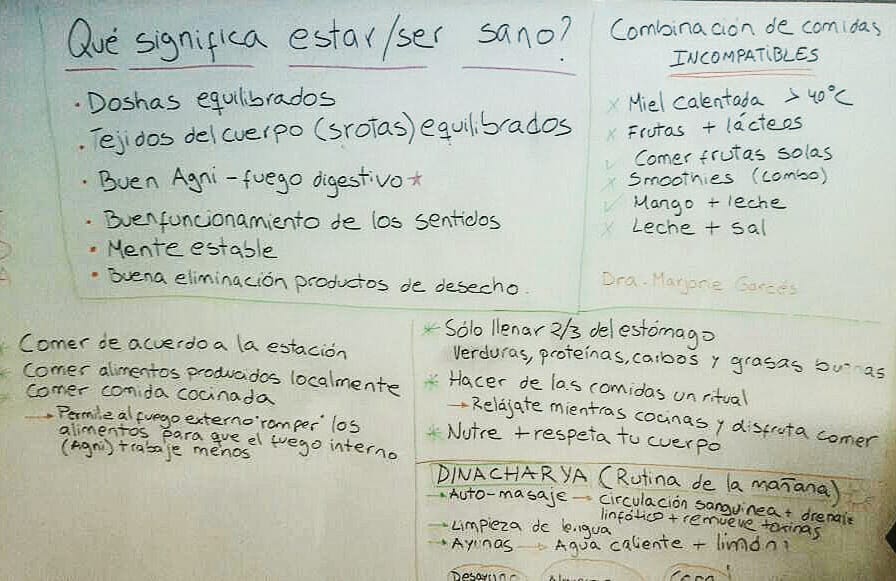 Qué significa estar/ser sano?
· Doshas equilibrados
· Tejidos del cuerpo (srotas) equilibrados
· Buen Agni - fuego digestivo *
· Buen funcionamiento de los sentidos
· Mente estable
· Buena eliminación productos de desecho.
Combinación de comidas
INCOMPATIBLES
x Miel calentada > 40°C
x Frutas + lácteos
✓ Comer frutas solas
x Smoothies (combo)
✓ Mango + leche
x Leche + sal
Dra. Marjorie Garcés
* Comer de acuerdo a la estación
* Comer alimentos producidos localmente
* Comer comida cocinada
→ Permite al fuego externo "romper" los
alimentos para que el fuego interno
(Agni) trabaje menos
* Sólo llenar 2/3 del estómago
Verduras, proteínas, carbos y grasas buenas
* Hacer de las comidas un ritual
→ Relájate mientras cocinas y disfruta comer
* Nutre + respeta tu cuerpo
DINACHARYA (Rutina de la mañana)
→ Auto-masaje → circulación sanguínea + drenaje
linfótico + remueve toxinas
→ Limpieza de lengua
→ Ayunas → Agua caliente + limón
Desayuno